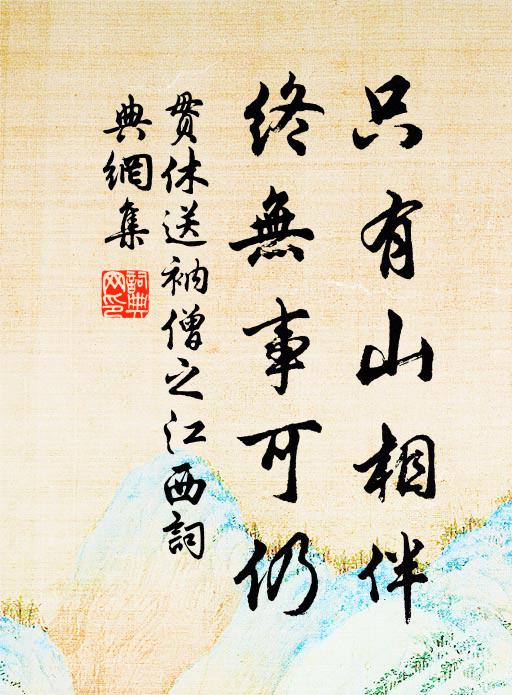 只有山相伴
終無事可仍
貫休送衲僧之江西詞
典網集
詞典網印